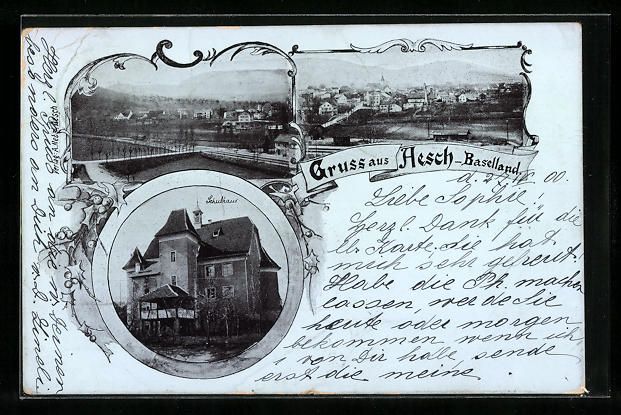 Gruss aus Aesch - Baselland
Schulhaus
Liebe Sophie,
herzl. Dank für die
lb. Karte, die hat
mich sehr gefreut.
Habe die Ph. machen
lassen, werde Sie
heute oder morgen
bekommen wenn ich
v. Dir habe, sende
erst die meine
Herzl. an
besonders an Dich und